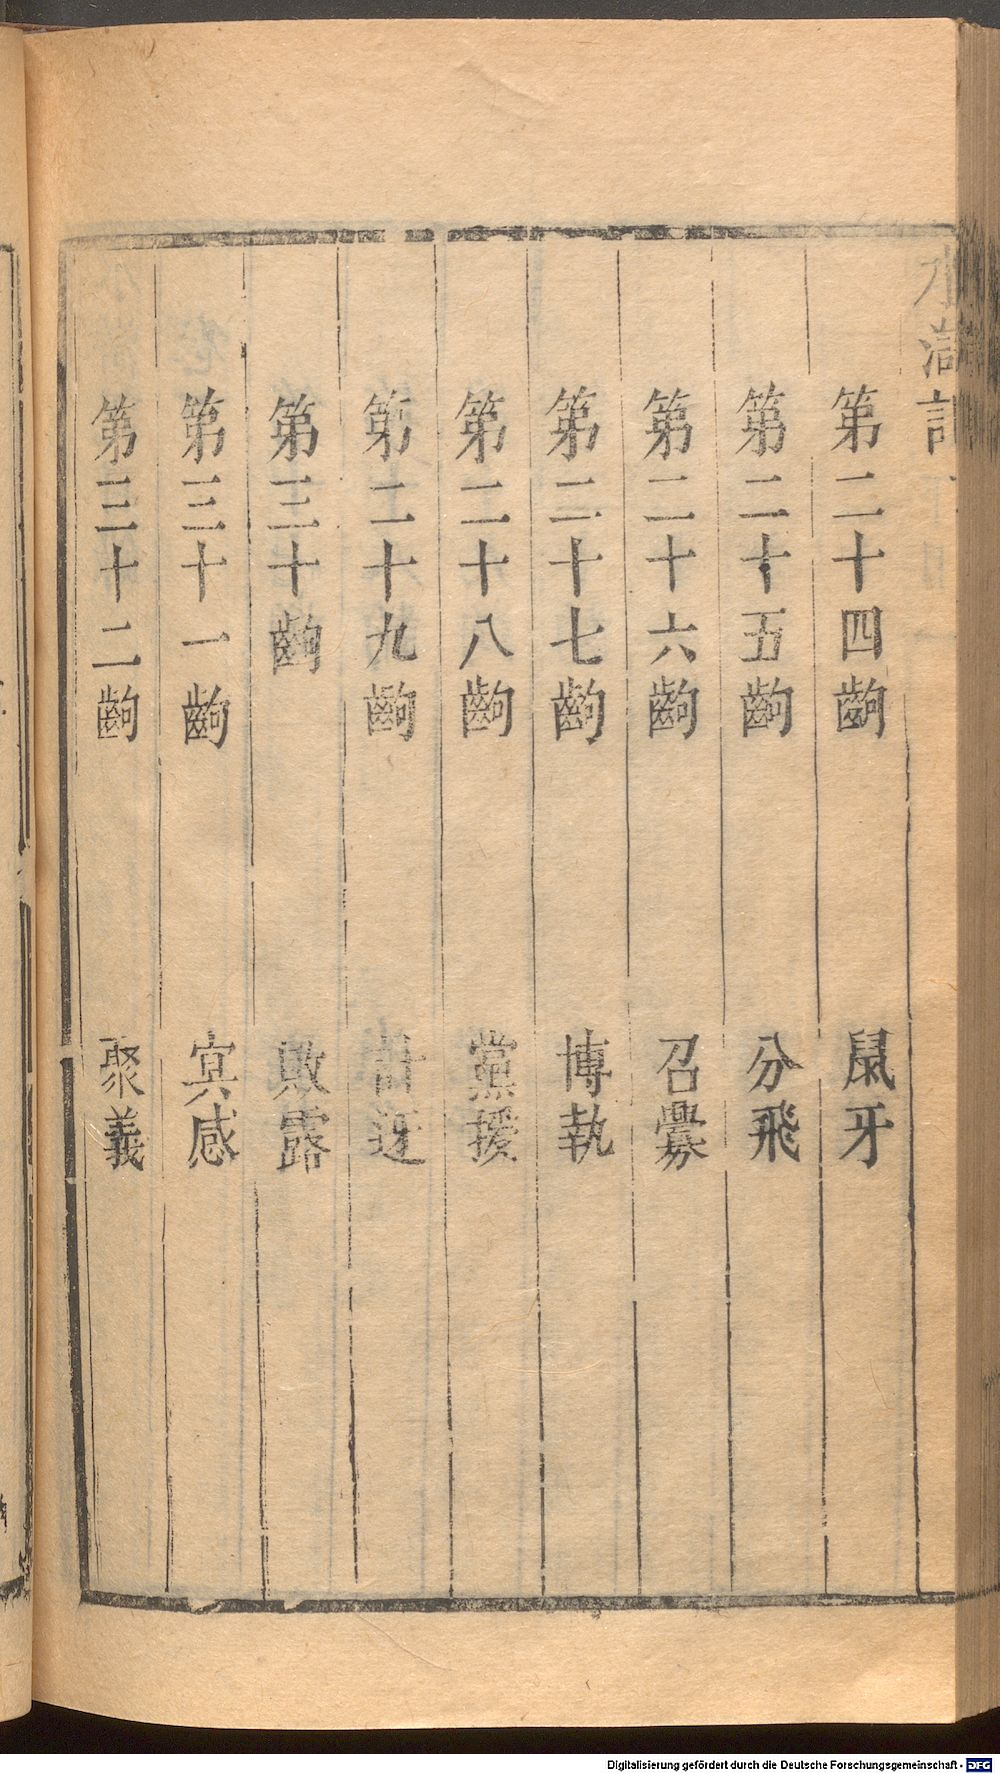 水滸記
第二十四齣 鼠牙
第二十五齣 分飛
第二十六齣 召釁
第二十七齣 博執
第二十八齣 黨援
第二十九齣 計迓
第三十齣 敗露
第三十一齣 冥感
第三十二齣 聚義
Digitalisierung gefördert durch die Deutsche Forschungsgemeinschaft - DFG